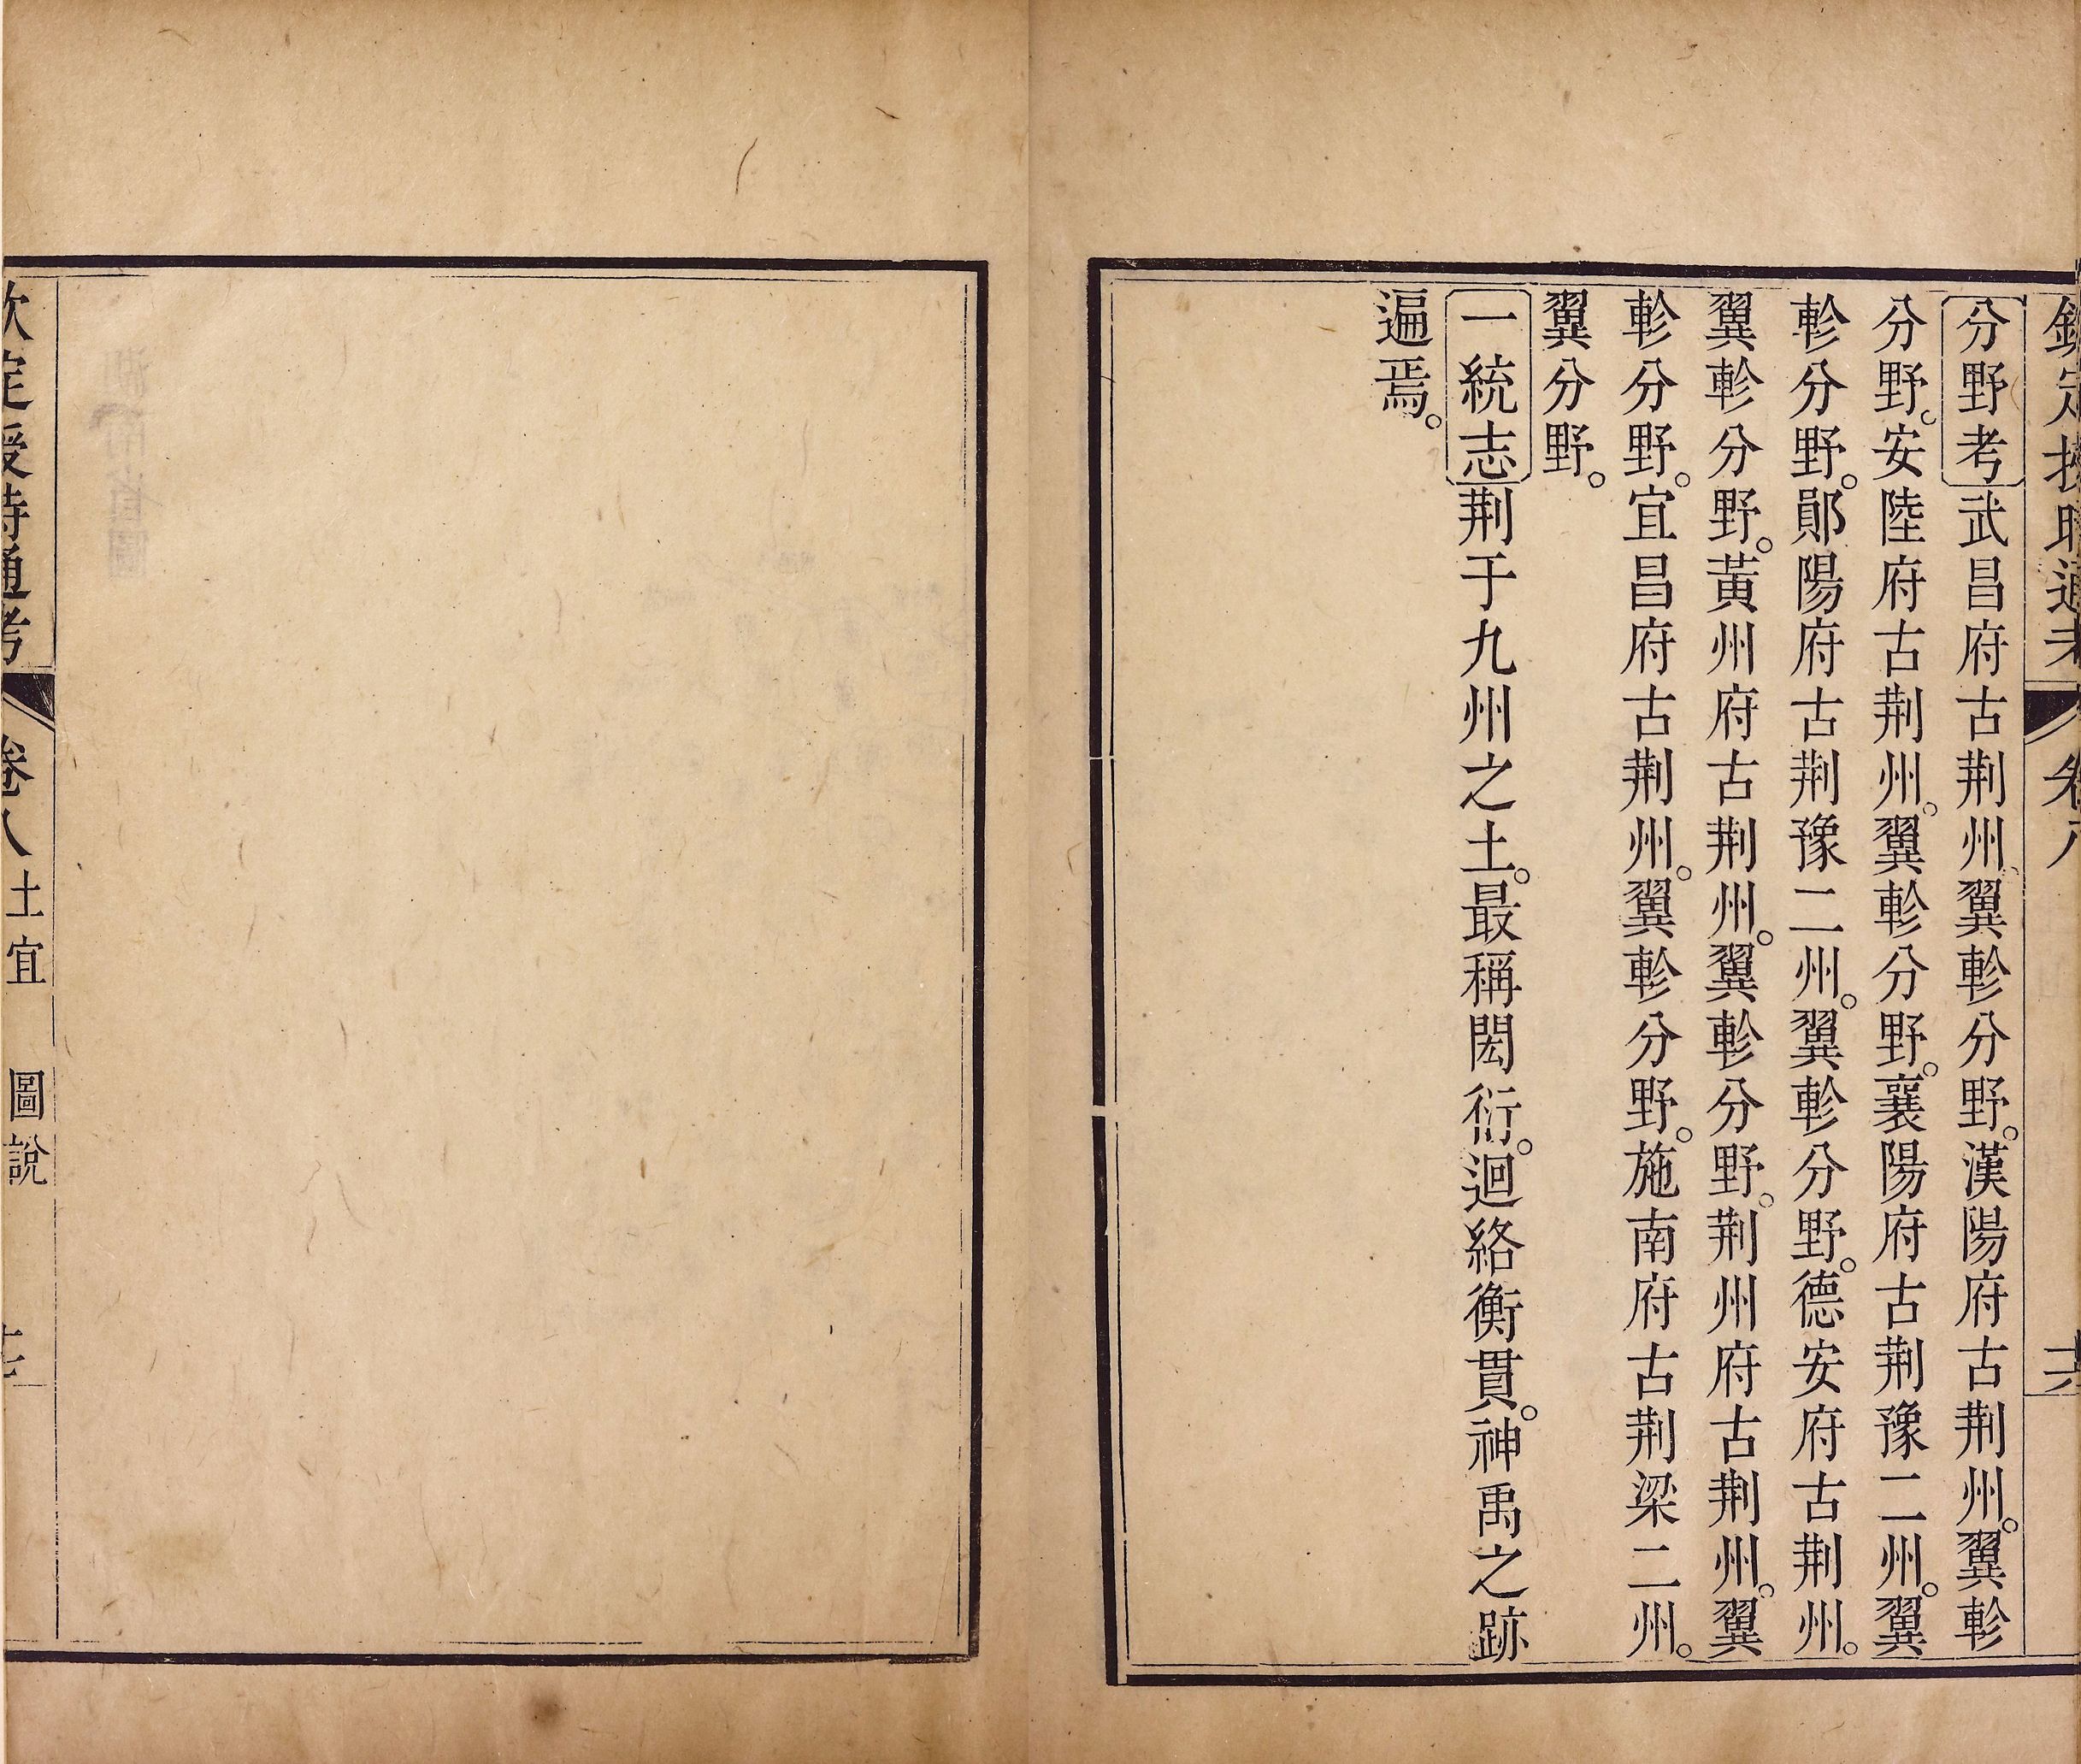 欽定授時通考 卷八 十六
分野考武昌府古荆州翼軫分野。漢陽府古荆州。翼軫
分野。安陸府古荆州。翼軫分野。襄陽府古荆豫二州。翼
軫分野。鄖陽府古荆豫二州。翼軫分野。德安府古荆州。
翼軫分野。黃州府古荆州。翼軫分野。荆州府古荆州。翼
軫分野。宜昌府古荆州。翼軫分野。施南府古荆梁二州。
翼分野。
一統志荆于九州之土。最稱閎衍。迴絡衡貫。神禹之跡
遍焉。
欽定授時通考 卷八 土宜 圖說